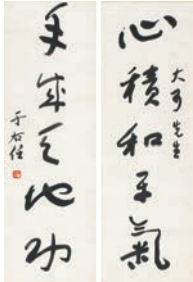 心積和平氣
大可先生
手成天地功
于右任